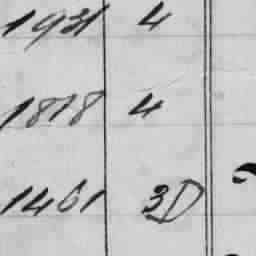 1931 4
1818 4
1461 3D